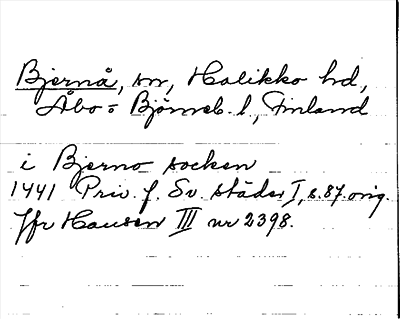 Bjernå, sn, Halikko hd,
Åbo = Björneb. l., Finland
i Bjerno socken
1441 Priv. f. Sv. städer I, s. 87. orig.
Jfr Hausen III nr 2398.